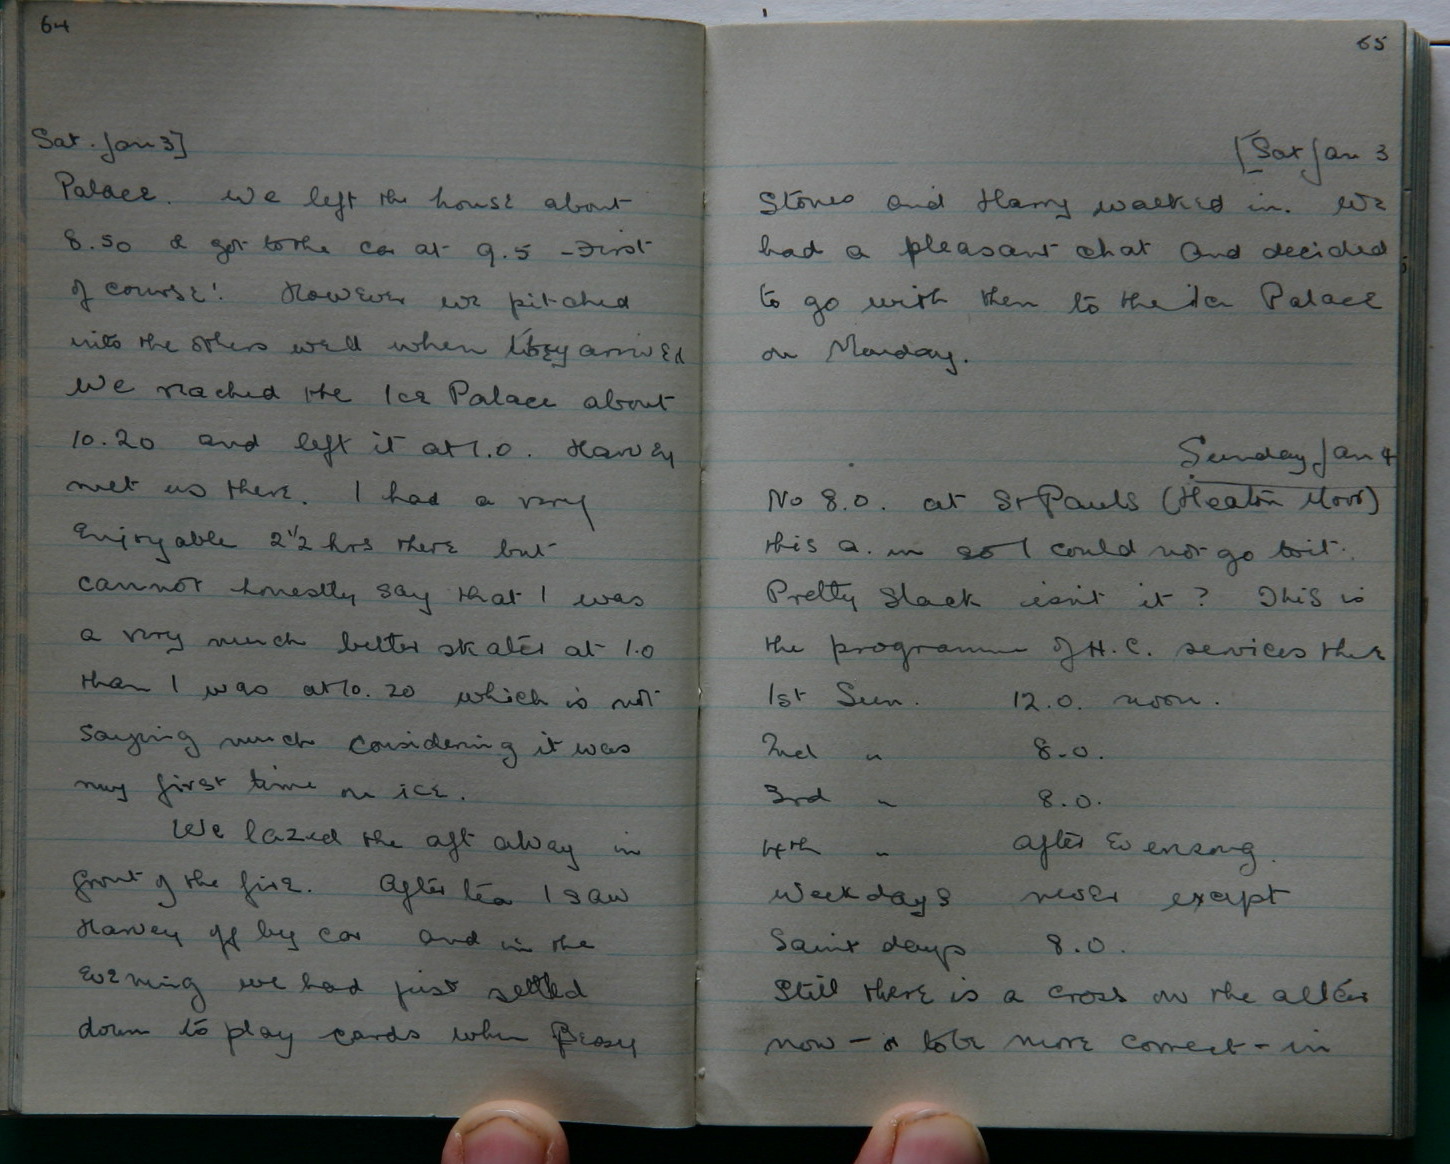 64
Sat. Jan 3]
Palace. We left the house about
8.50 & got to the car at 9.5 - First
of course! However we pitched
into the others well when they arrived
We reached the Ice Palace about
10.20 and left it at 1.0. Harvey
met us there. I had a very
enjoyable 2½ hrs there but
cannot honestly say that I was
a very much better skater at 1.0
than I was at 10.20 which is not
saying much considering it was
my first time on ice.
We lazed the aft away in
front of the fire. After tea I saw
Harvey off by car and in the
evening we had just settled
down to play cards when
65
[Sat Jan 3
Stones and Harry walked in. We
had a pleasant chat and decided
to go with them to the Ice Palace
on Monday.
Sunday Jan 4
No 8.0. at St Pauls (Heaton Moor)
this a.m so I could not go to it.
Pretty slack isn't it? This is
the programme of H.C. services there
1st Sun. 12.0. noon.
2nd " 8.0.
3rd " 8.0.
4th " after Evensong.
Weekdays never except
Saint days 8.0.
Still there is a cross on the altar
now - or to be more correct - in